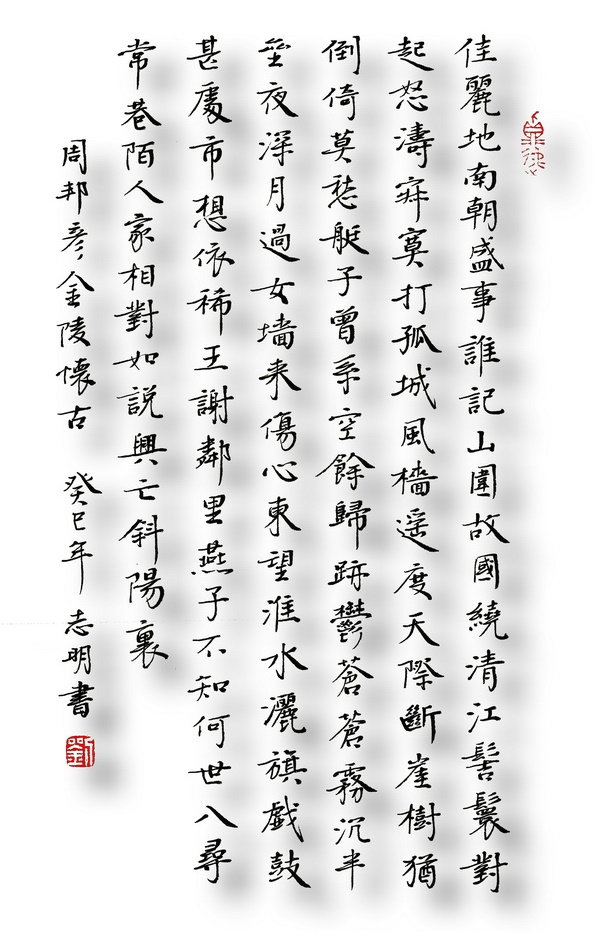 佳麗地南朝盛事誰記山圍故國繞清江髻鬟對
起怒濤寂寞打孤城風檣遥度天際斷崖樹猶
倒倚莫愁艇子曾系空餘歸跡鬱蒼蒼霧沉半
壘夜深月過女墻来傷心東望淮水灑旗戲鼓
甚處市想依稀王謝鄰里燕子不知何世入尋
常巷陌人家相對如説興亡斜陽裏
周邦彦金陵懷古 癸巳年 志明書
劉